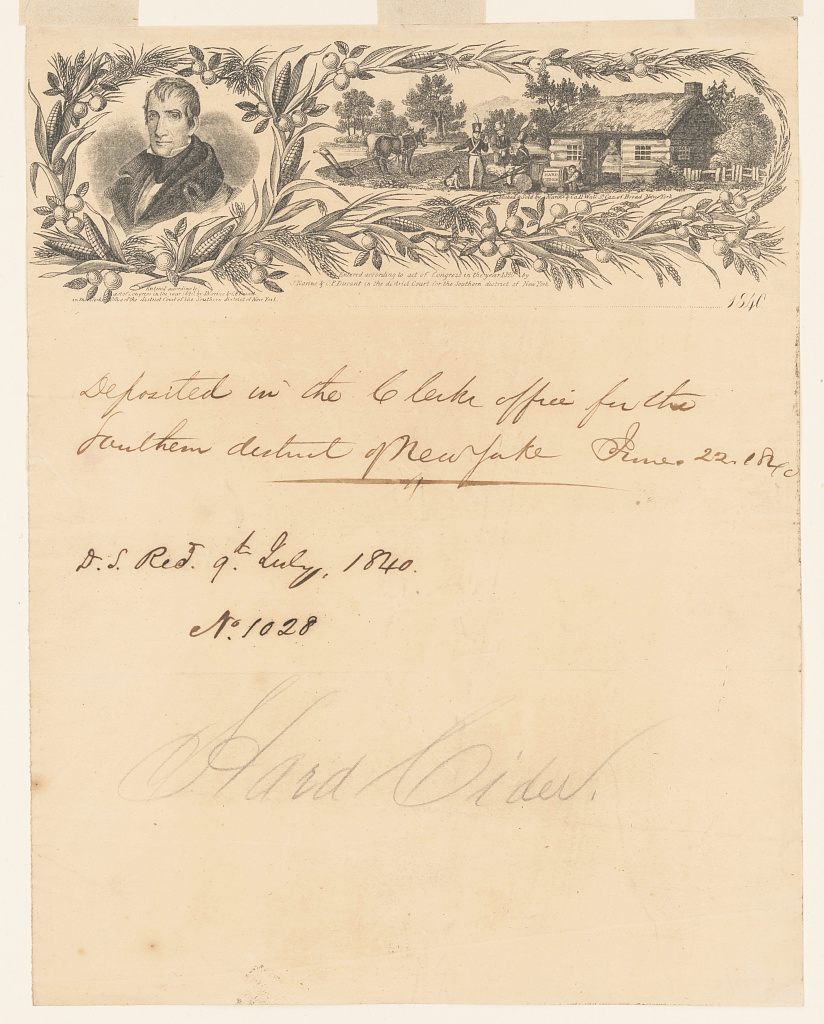 Published & Sold by J. Narine & Co. 11 Wall St. Cor. of Broad New York
Entered according to act of Congress in the year 1840 by
J. Narine & C. F. Durant in the district Court for the Southern district of New York
Entered according to
act of Congress in the year 1840 by J. Narine & C. F. Durant
in the Clerks Office of the district Court of the Southern district of New York.
1840
Deposited in the Clerks office for the
Southern district of New York June. 22. 1840
D. S. Recd. 9th. July, 1840.
No. 1028
Hard Cider.